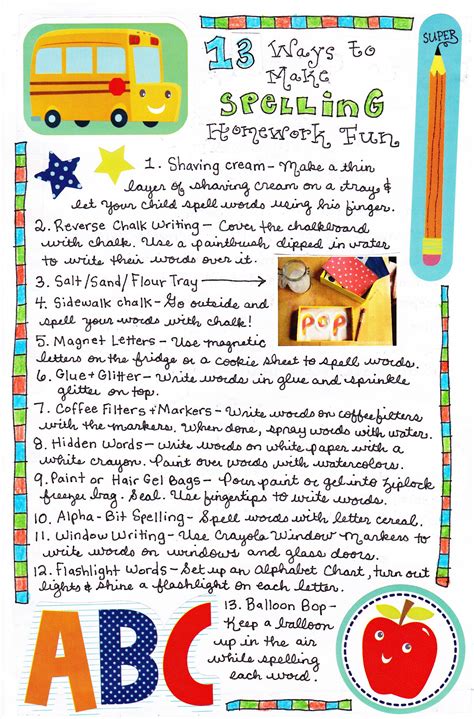 13 Ways to
Make
SPELLING
Homework Fun
SUPER
1. Shaving cream- Make a thin
layer of shaving cream on a tray &
let your child spell words using his finger.
2. Reverse Chalk Writing - Cover the chalkboard
with chalk. Use a paintbrush dipped in water
to write their words over it.
3. Salt/Sand/Flour Tray
4. Sidewalk chalk- Go outside and
spell your words with chalk!
POP
5. Magnet Letters - Use magnetic
letters on the fridge or a cookie sheet to spell words.
6. Glue + Glitter - Write words in glue and sprinkle
glitter on top.
7. Coffee Filters + Markers - Write words on coffee filters
with the markers. When done, spray words with water.
8. Hidden Words - write words on white paper with a
white crayon. Paint over words with watercolors.
9. Paint or Hair Gel Bags - Pour paint or gel into Ziplock
freezer bag. Seal. Use fingertips to write words.
10. Alpha-Bit Spelling - Spell words with letter cereal.
11. Window Writing - Use Crayola Window Markers to
write words on windows and glass doors.
12. Flashlight Words - Set up an Alphabet Chart, turn out
lights & shine a flashlight on each letter.
13. Balloon Bop-
Keep a balloon
up in the air
while spelling
each word.
ABC